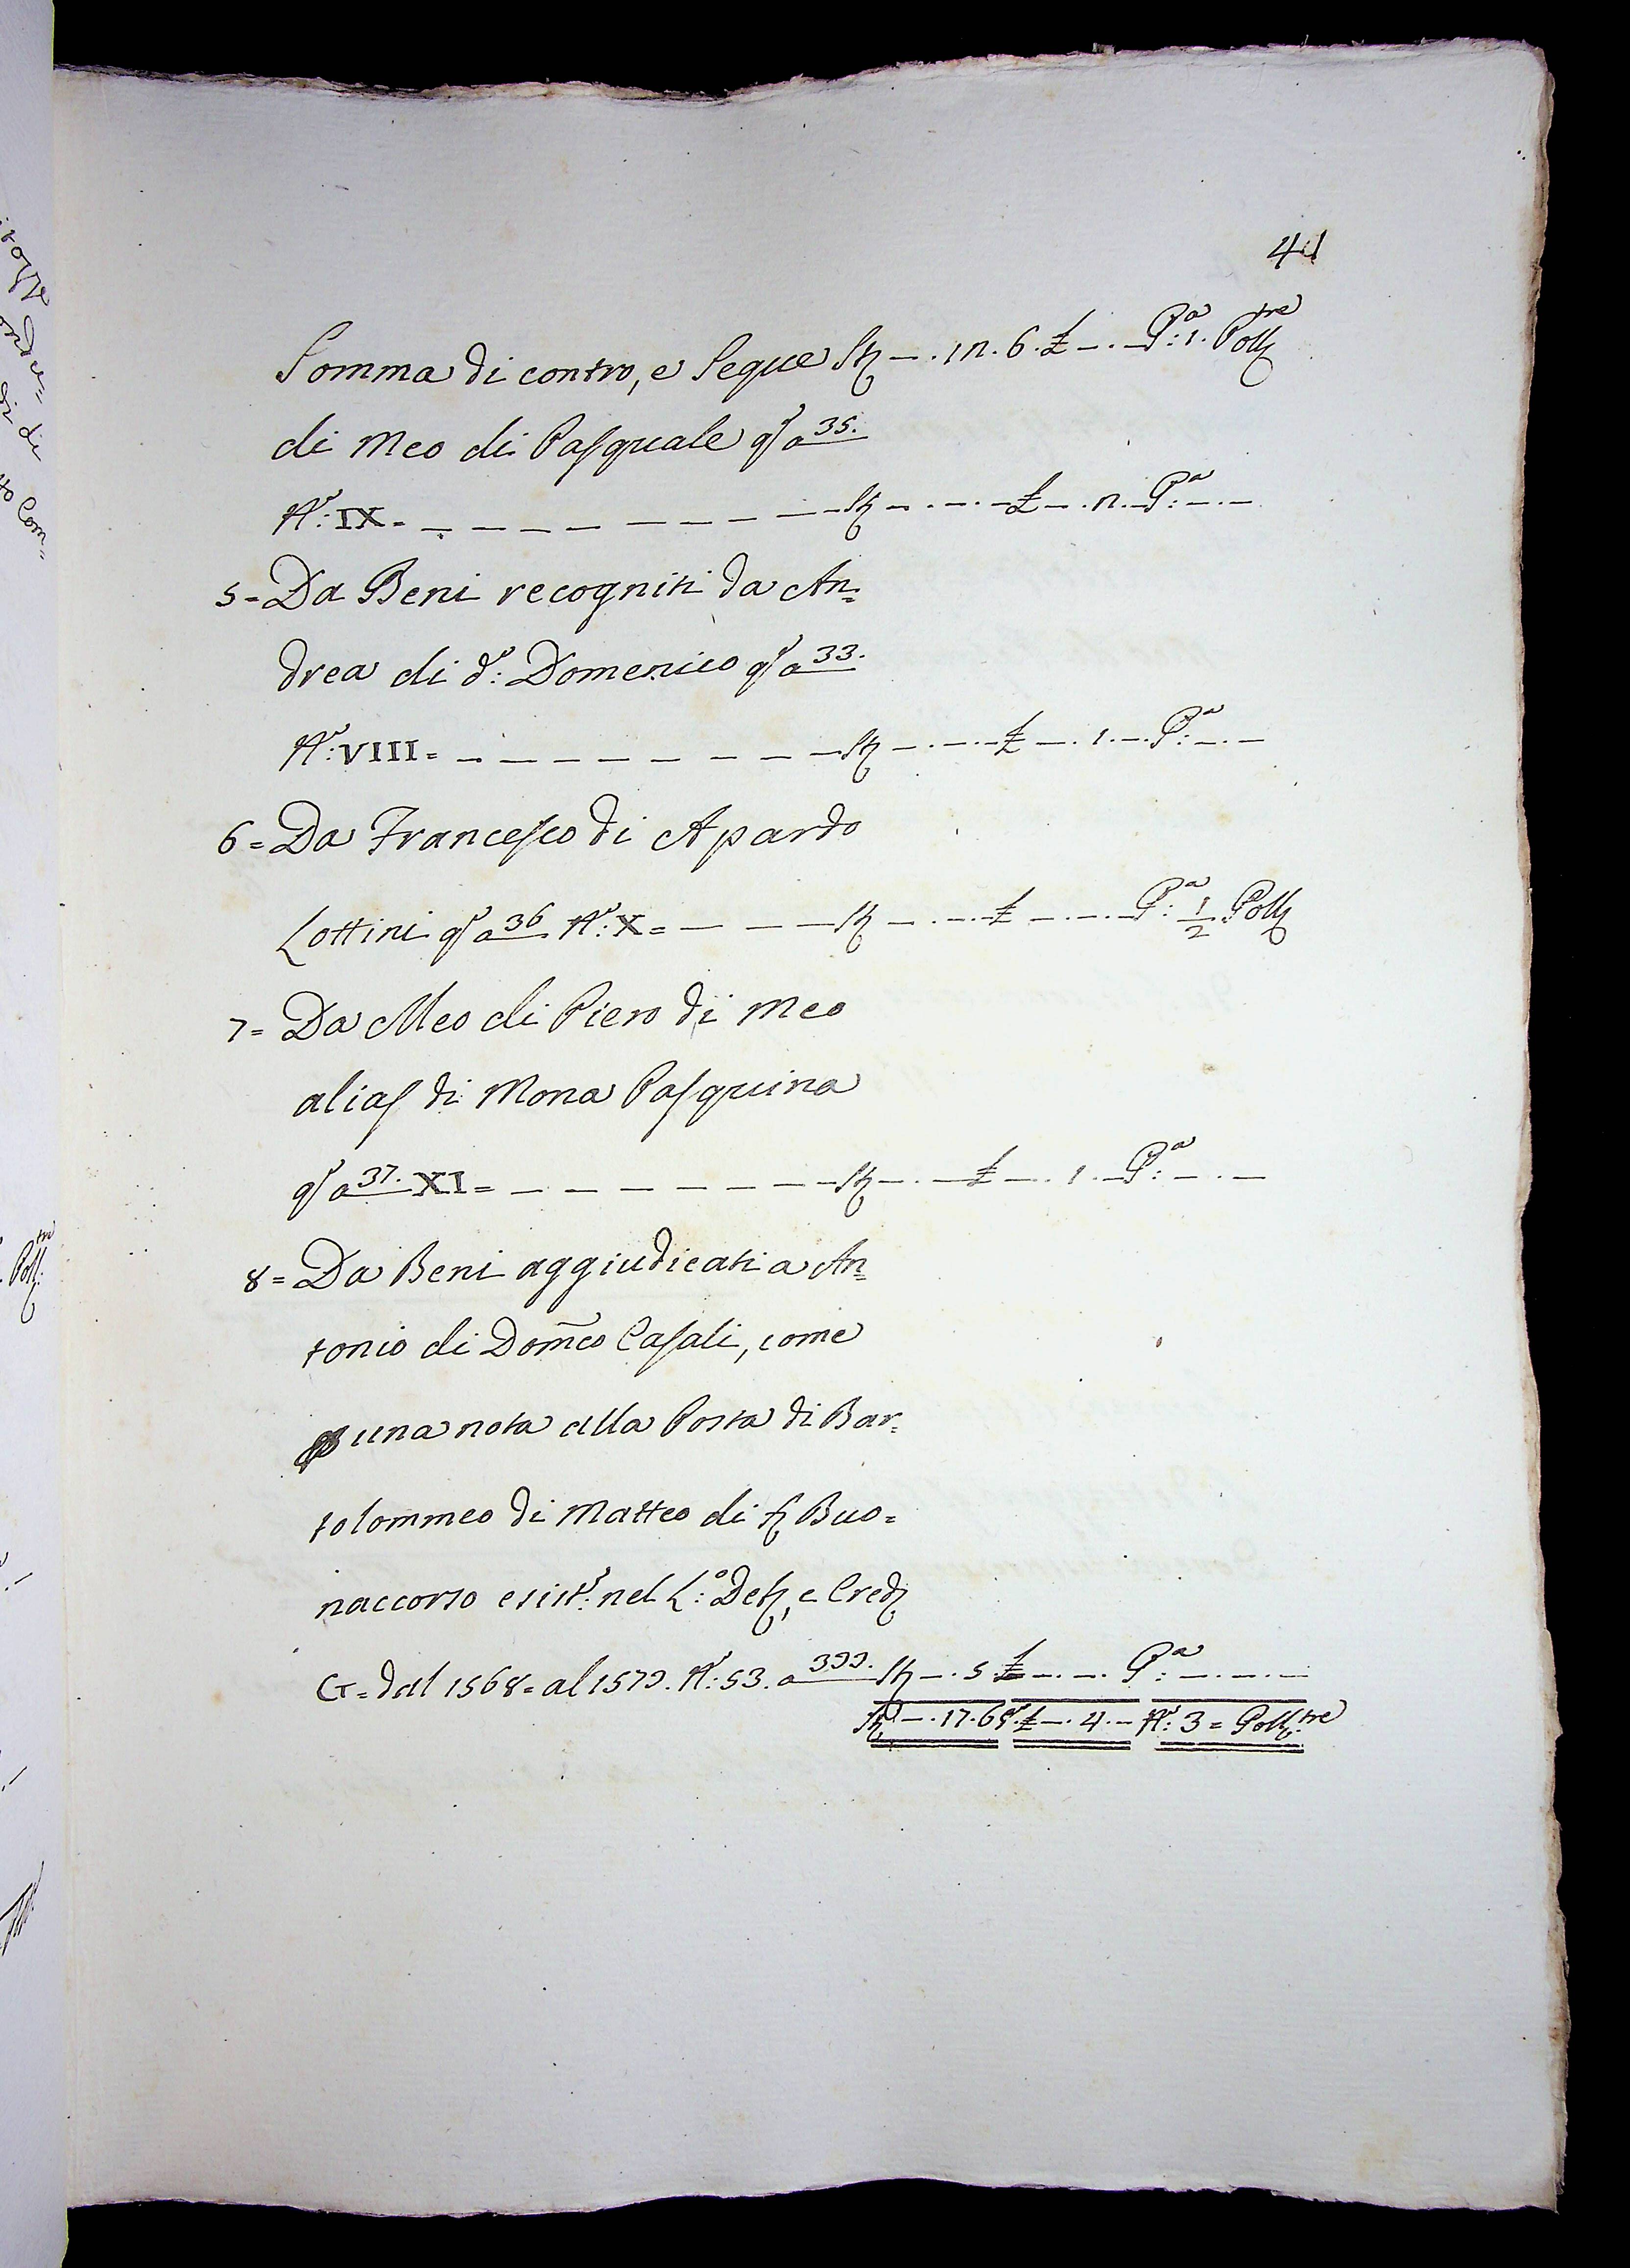 41
Somma di contro, e Segue St — . 12. 6. £ — . — P:ª 1. Poll:tre
di Meo di Pasquale qo a 35.
No: IX = — — — — — — — St — . — . — £ — . 2. — P:ª — . —
5 = Da Beni recogniti da An=
drea di do: Domenico qo a 33.
No: VIII = — — — — — — — St — . — . — £ — . 1. — P:ª — . —
6 = Da Francesco di Apardo
Lottini qo a 36 No: X = — — — St — . — . — £ — . — . — P:ª 1/2 Poll
7 = Da Meo di Piero di Meo
alias di Mona Pasquina
qo a 37. XI = — — — — — — — St — . — £ — . 1. — P:ª — . —
8 = Da Beni aggiudicati a An=
tonio di Domco Casali, come
p una nota alla Posta di Bar=
tolommeo di Matteo di Buo=
naccorso esiste: nel L:o Deb, e Cred
G = dal 1568 = al 1579. No: 53. a 399. St — . 5. £ — . — . P:ª — . — . —
St — . 17. 6 £ — . 4. — No: 3 = Poll:tre